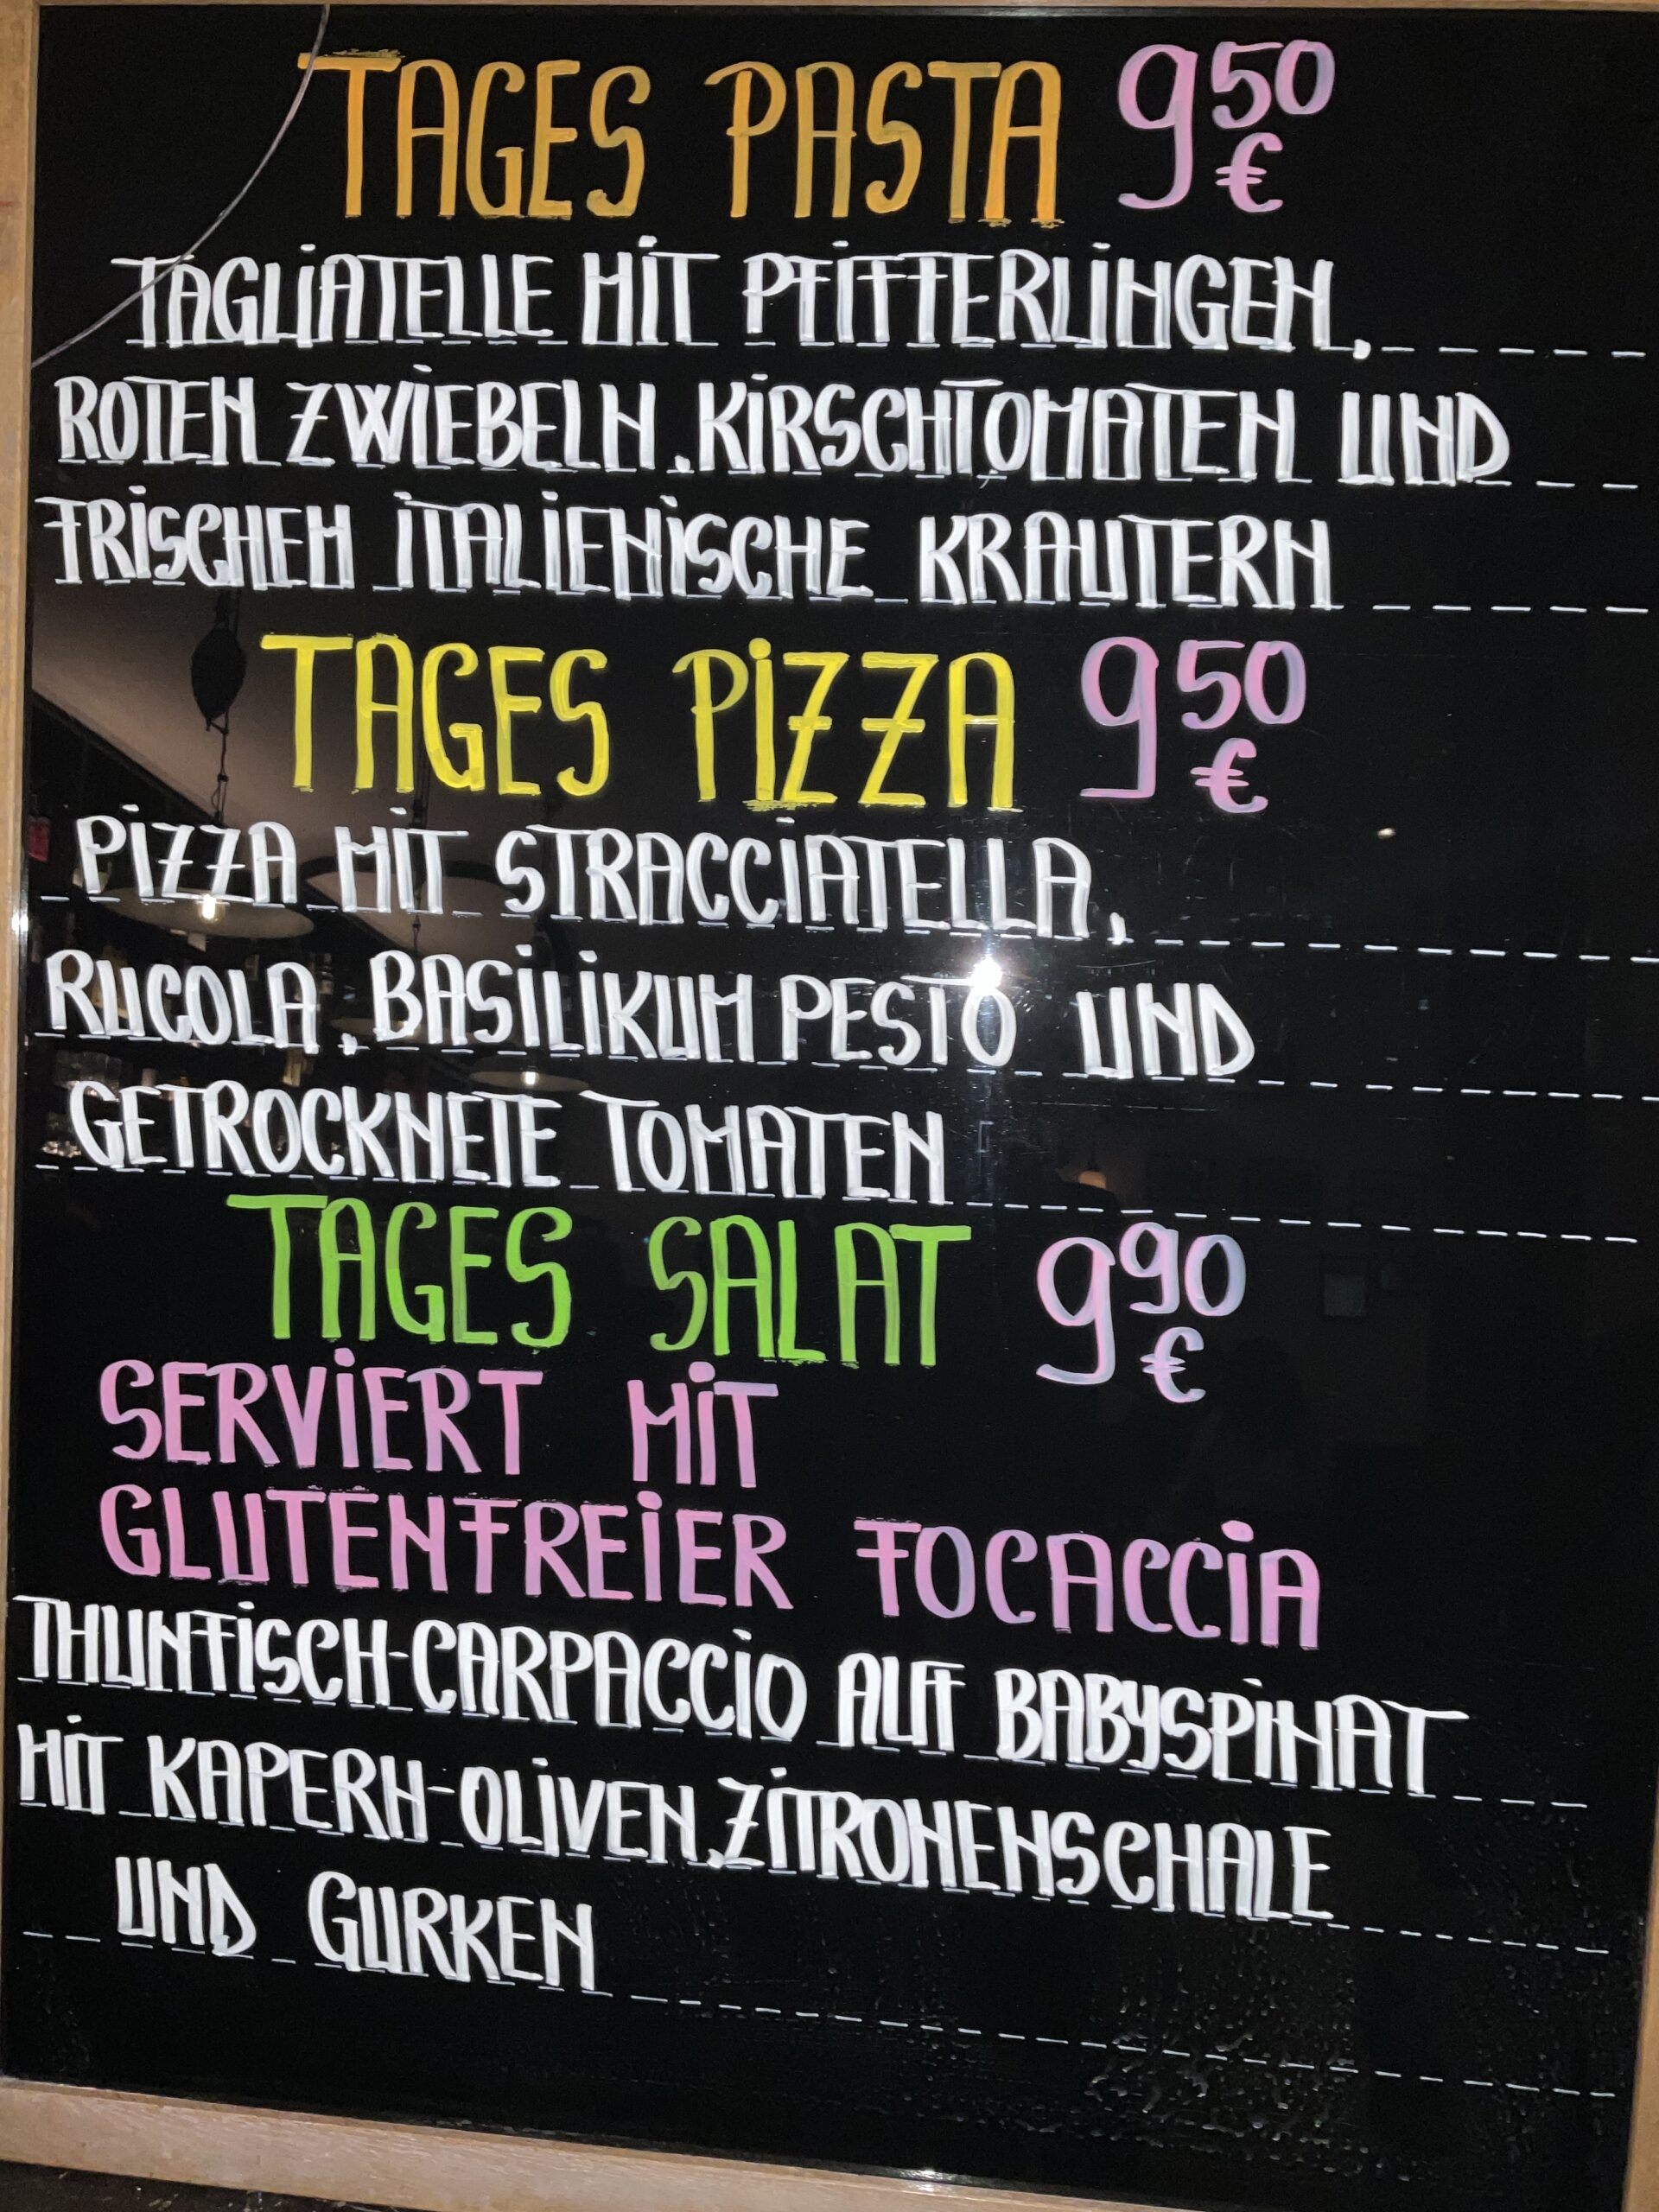 TAGES PASTA 9,50 €
TAGLIATELLE MIT PFIFFERLINGEN,
ROTEN ZWIEBELN, KIRSCHTOMATEN UND
FRISCHEN ITALIENISCHE KRAUTERN
TAGES PIZZA 9,50 €
PIZZA MIT STRACCIATELLA,
RUCOLA, BASILIKUM PESTO UND
GETROCKNETE TOMATEN
TAGES SALAT 9,90 €
SERVIERT MIT
GLUTENFREIER FOCACCIA
THUNFISCH-CARPACCIO AUF BABYSPINAT
MIT KAPERN-OLIVEN, ZITRONENSCHALE
UND GURKEN